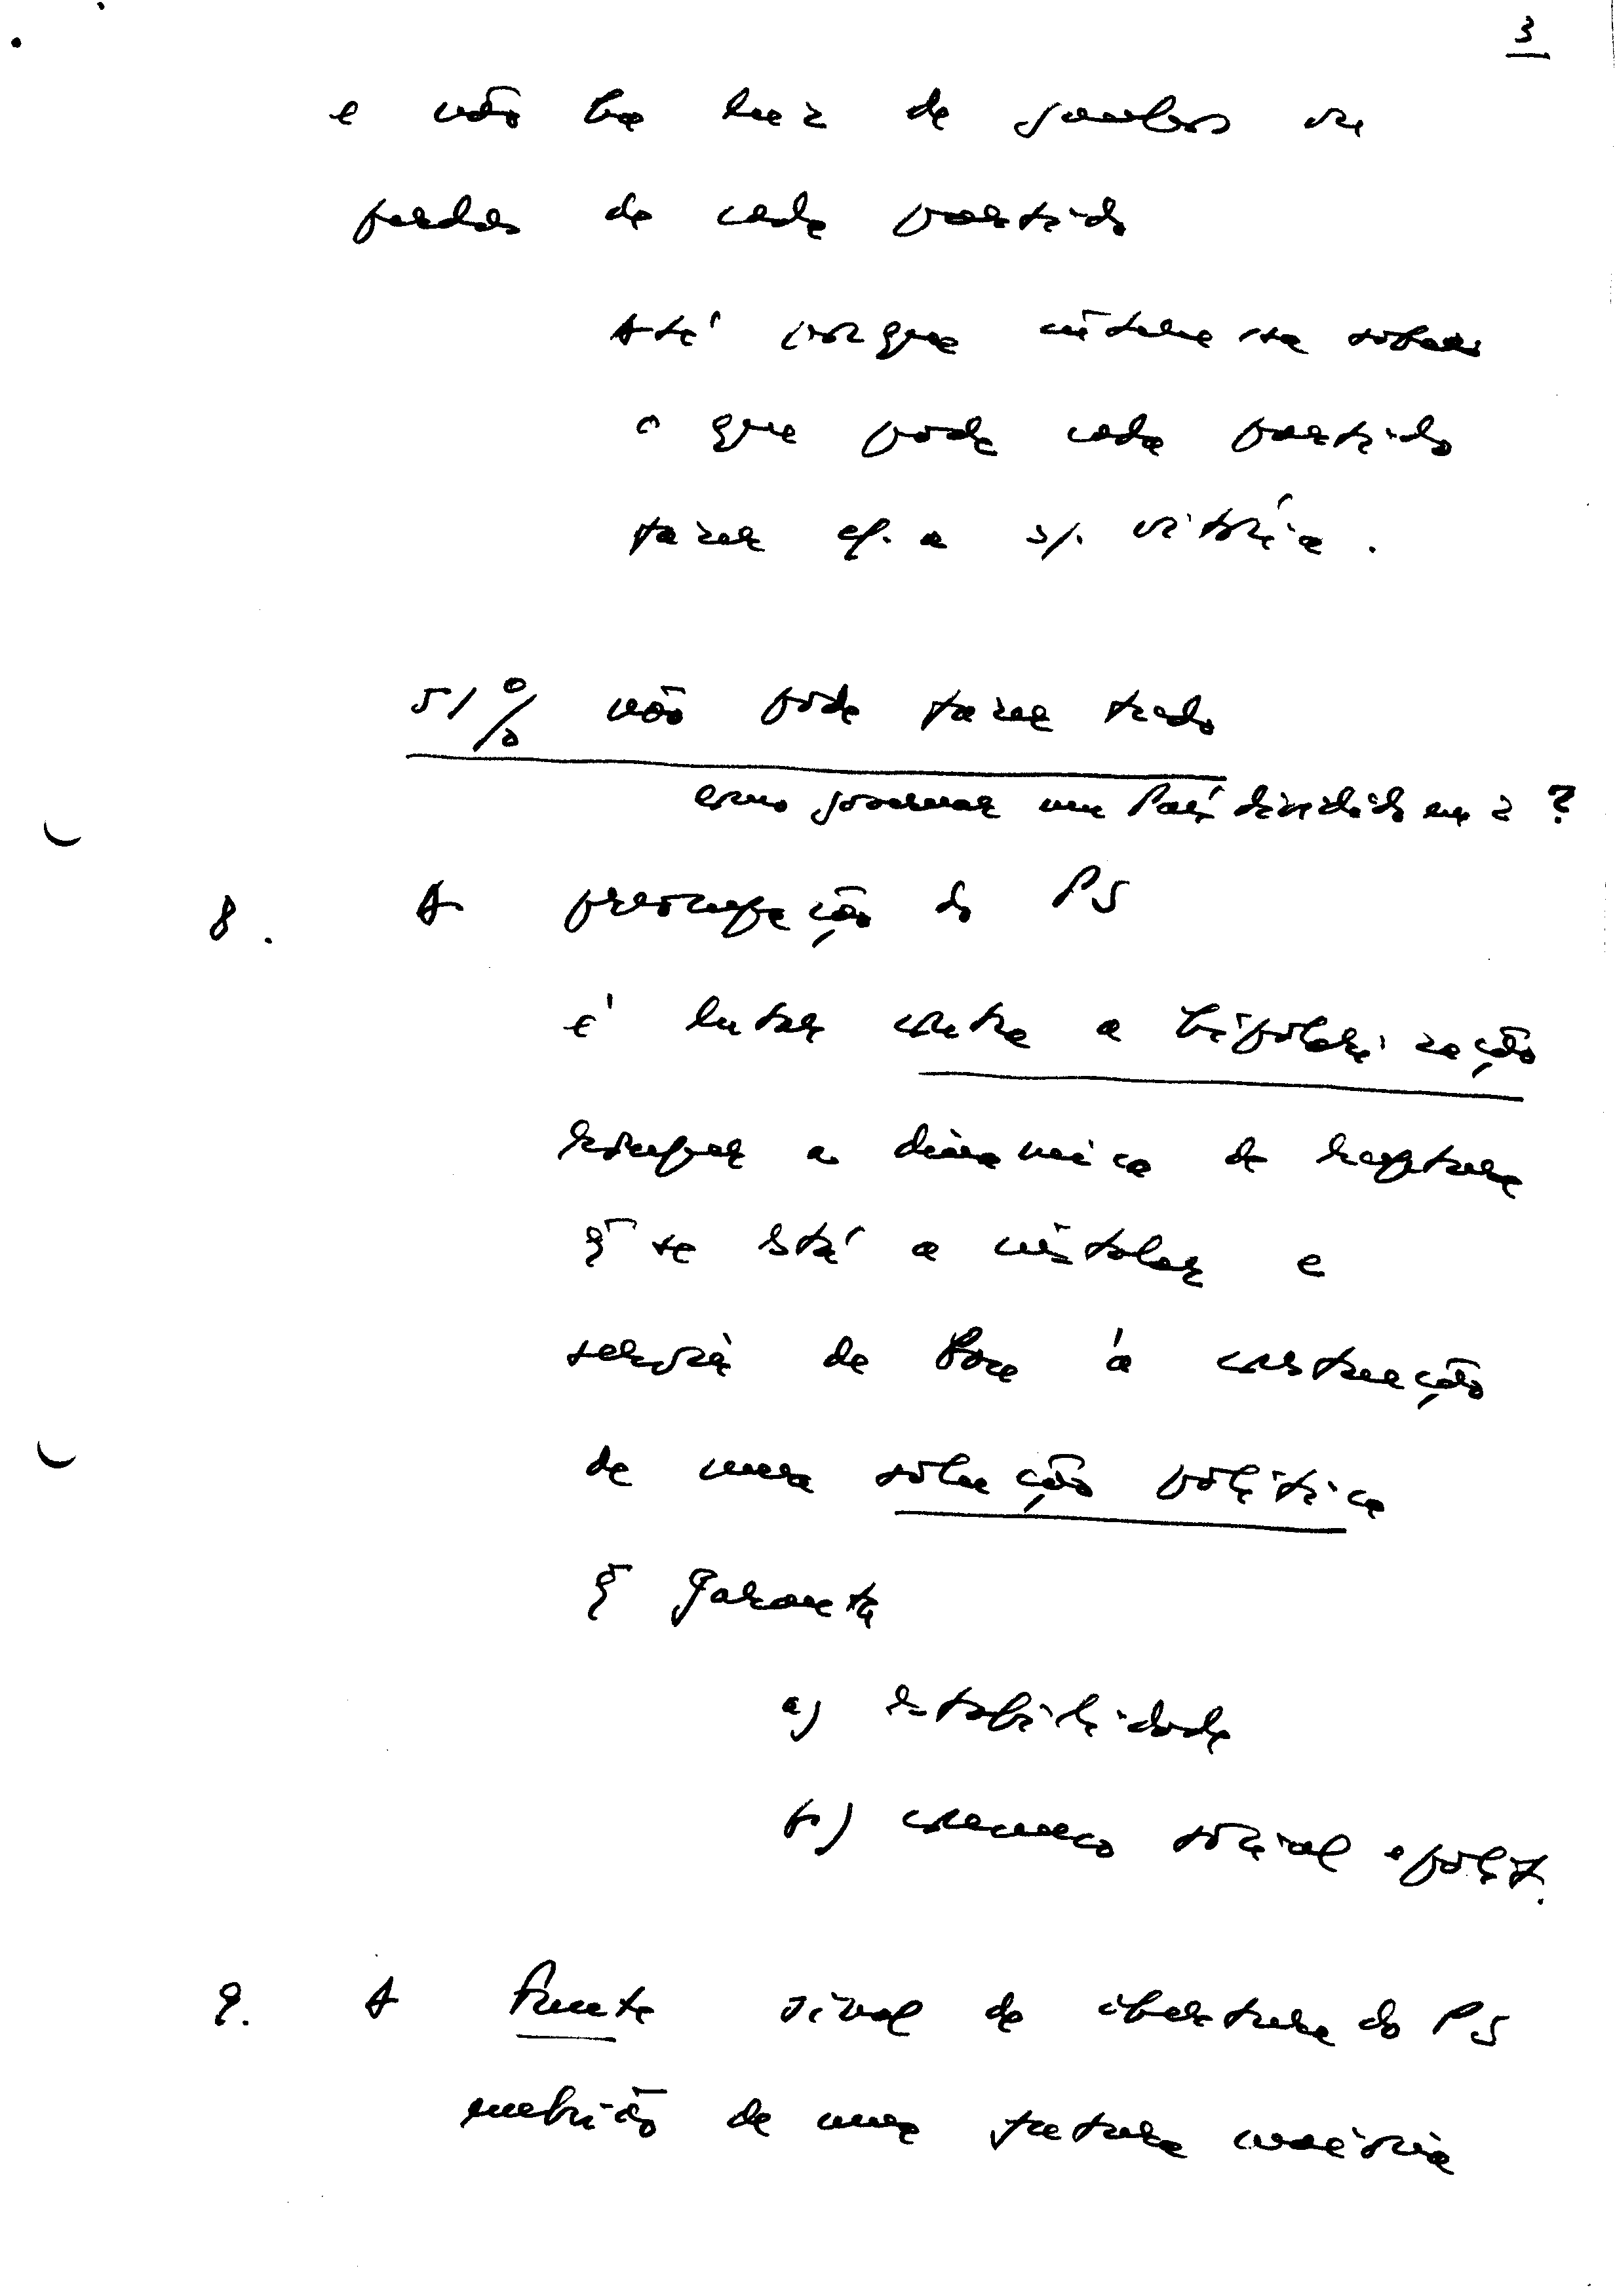 3
e não há luz de ganhos ou
perdas de cada partido
Até porque interessa saber
o que pode cada partido
fazer c/. a s/. vitória.
51% não pode fazer tudo
como governar um País dividido em 2 ?
8. A preocupação do PS
é lutar contra a bipolarização
romper a dinâmica de ruptura
q̄ se está a instalar e
servir de base à construção
de uma solução política
q̄ garanta
a) estabilidade
b) consenso social e polít.
9. A Frente sinal de abertura do PS
embrião de uma futura maioria